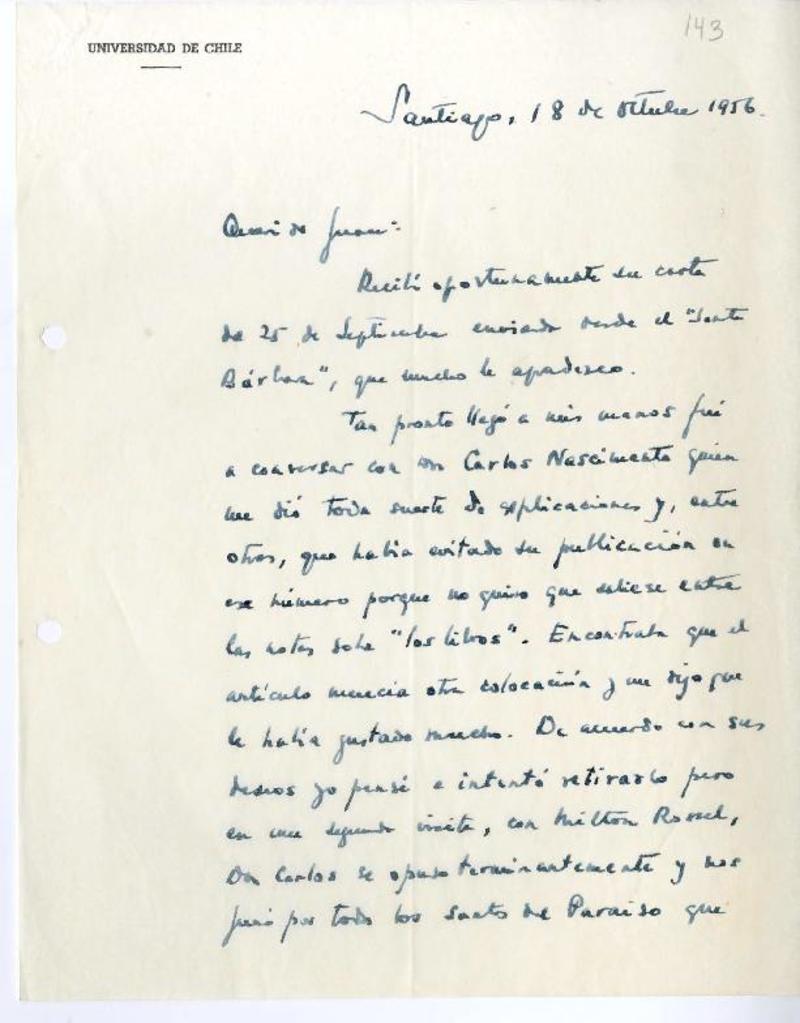 143
UNIVERSIDAD DE CHILE
Santiago, 18 de octubre 1956.
Querido Juan:
Recibí oportunamente su carta
de 25 de Septiembre enviada desde el "Santa
Bárbara", que mucho le agradezco.
Tan pronto llegó a mis manos fuí
a conversar con Don Carlos Nascimento quien
me dió toda suerte de explicaciones y, entre
otras, que había evitado su publicación en
ese número porque no quiso que saliese entre
las notas sobre "los libros". Encontraba que el
artículo merecía otra colocación y me dijo que
le había gustado mucho. De acuerdo con sus
deseos yo pensé e intenté retirarlo pero
en una segunda visita, con Milton Rossel,
Don Carlos se opuso terminantemente y nos
juró por todos los santos del Paraíso que